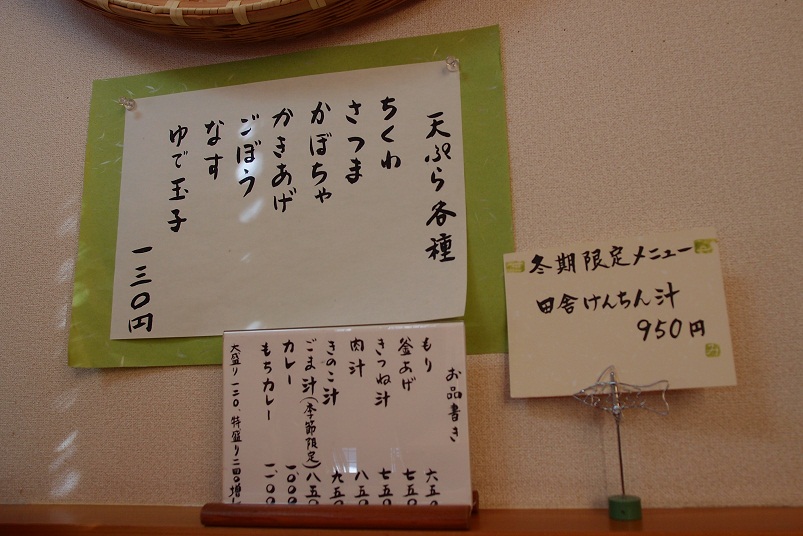 天ぷら各種
ちくわ
さつま
かぼちゃ
かきあげ
ごぼう
なす
ゆで玉子
一三〇円
お品書き
もり 六五
釜あげ 七五〇
きつね汁 七五〇
肉汁 八五〇
きのこ汁 九五〇
ごま汁(季節限定) 八五〇
カレー 一〇〇〇
もちカレー 一一〇〇
大盛り一二〇、特盛り二四〇増し
冬期限定メニュー
田舎けんちん汁
950円